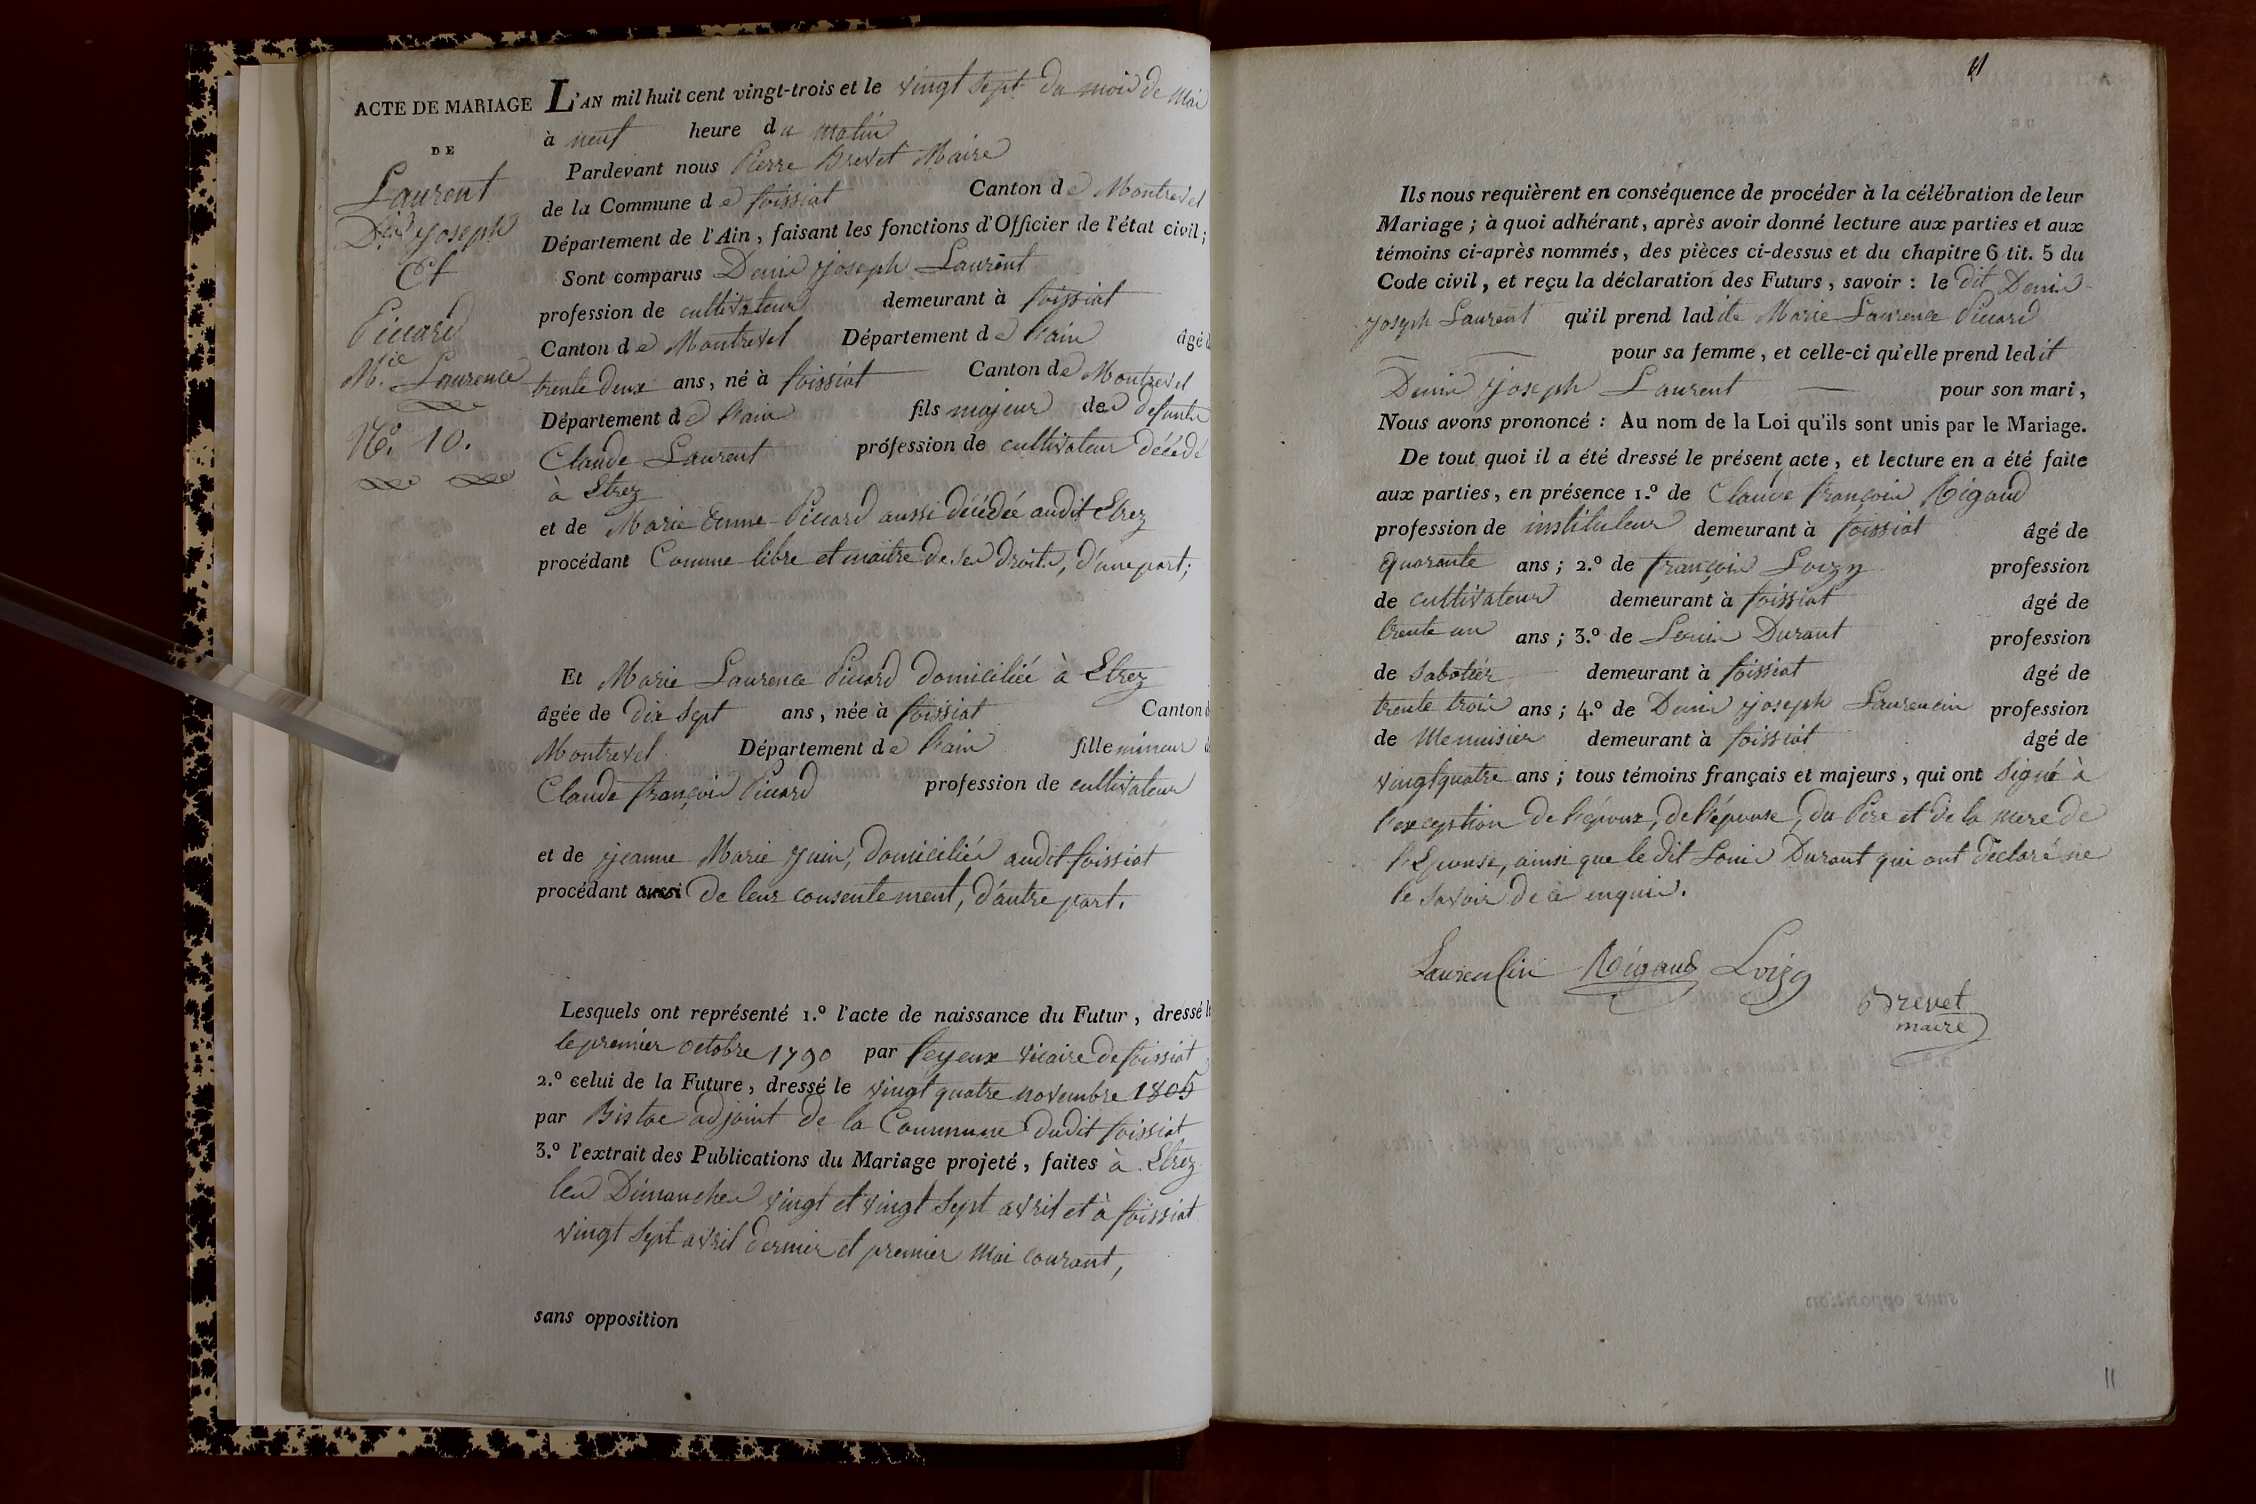 ACTE DE MARIAGE
DE
Laurent
Dis Joseph
Et
Piccard
Mie Laurence
No. 10.
L'AN mil huit cent vingt-trois et le vingt sept du mois de Mai
à neuf heure du matin
Pardevant nous Pierre Brevet Maire
de la Commune de foissiat Canton de Montrevel
Département de l'Ain, faisant les fonctions d'Officier de l'état civil;
Sont comparus Denis Joseph Laurent
profession de cultivateur demeurant à foissiat
Canton de Montrevel Département de l'ain âgé d
trente deux ans, né à foissiat Canton de Montrevel
Département de l'ain fils majeur de defunts
Claude Laurent profession de cultivateur décédé
à Etrez
et de Marie Piccard aussi décédée audit Etrez
procédant Comme libre et maitre de ses droits, d'une part;
Et Marie Laurence Piccard domiciliée à Etrez
âgée de dix sept ans, née à foissiat Canton d
Montrevel Département de l'ain fille mineur d
Claude françois Piccard profession de cultivateur
et de jeanne Marie Juin, domiciliés audit foissiat
procédant de leur consentement, d'autre part.
Lesquels ont représenté 1.º l'acte de naissance du Futur, dressé l
le premier octobre 1790 par vicaire de foissiat
2.º celui de la Future, dressé le vingt quatre novembre 1805
par adjoint de la Commune dudit foissiat
3.º l'extrait des Publications du Mariage projeté, faites à Etrez
les Dimanches vingt et vingt sept avril et à foissiat
vingt sept avril dernier et premier Mai courant,
sans opposition
11
Ils nous requièrent en conséquence de procéder à la célébration de leur
Mariage; à quoi adhérant, après avoir donné lecture aux parties et aux
témoins ci-après nommés, des pièces ci-dessus et du chapitre 6 tit. 5 du
Code civil, et reçu la déclaration des Futurs, savoir : le dit Denis
Joseph Laurent qu'il prend ladite Marie Laurence Piccard
pour sa femme, et celle-ci qu'elle prend ledit
Denis Joseph Laurent pour son mari,
Nous avons prononcé : Au nom de la Loi qu'ils sont unis par le Mariage.
De tout quoi il a été dressé le présent acte, et lecture en a été faite
aux parties, en présence 1.º de Claude françois Rigaud
profession de instituteur demeurant à foissiat âgé de
quarante ans; 2.º de françois Loizy profession
de cultivateur demeurant à foissiat âgé de
trente un ans; 3.º de Louis Durant profession
de Sabotier demeurant à foissiat âgé de
trente trois ans; 4.º de Denis Joseph Laurencin profession
de Menuisier demeurant à foissiat âgé de
vingt quatre ans; tous témoins français et majeurs, qui ont Signé à
l'exception de l'époux, de l'épouse, du Pere et de la mere de
l'Epouse, ainsi que le dit Louis Durant qui ont déclaré ne
le savoir de ce enquis.
Laurencin Rigaud Loizy
Brevet
maire
11